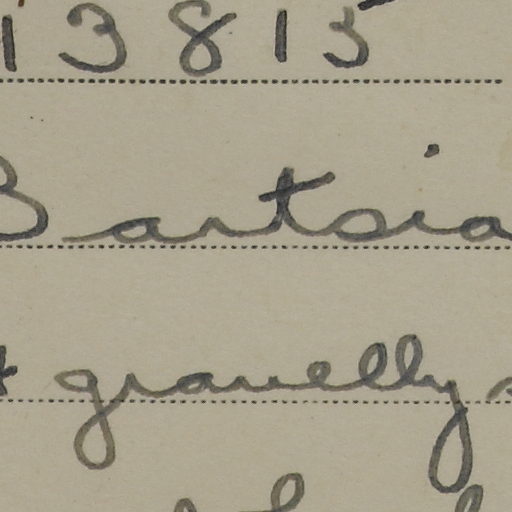 13815
Bartsia
gravelly